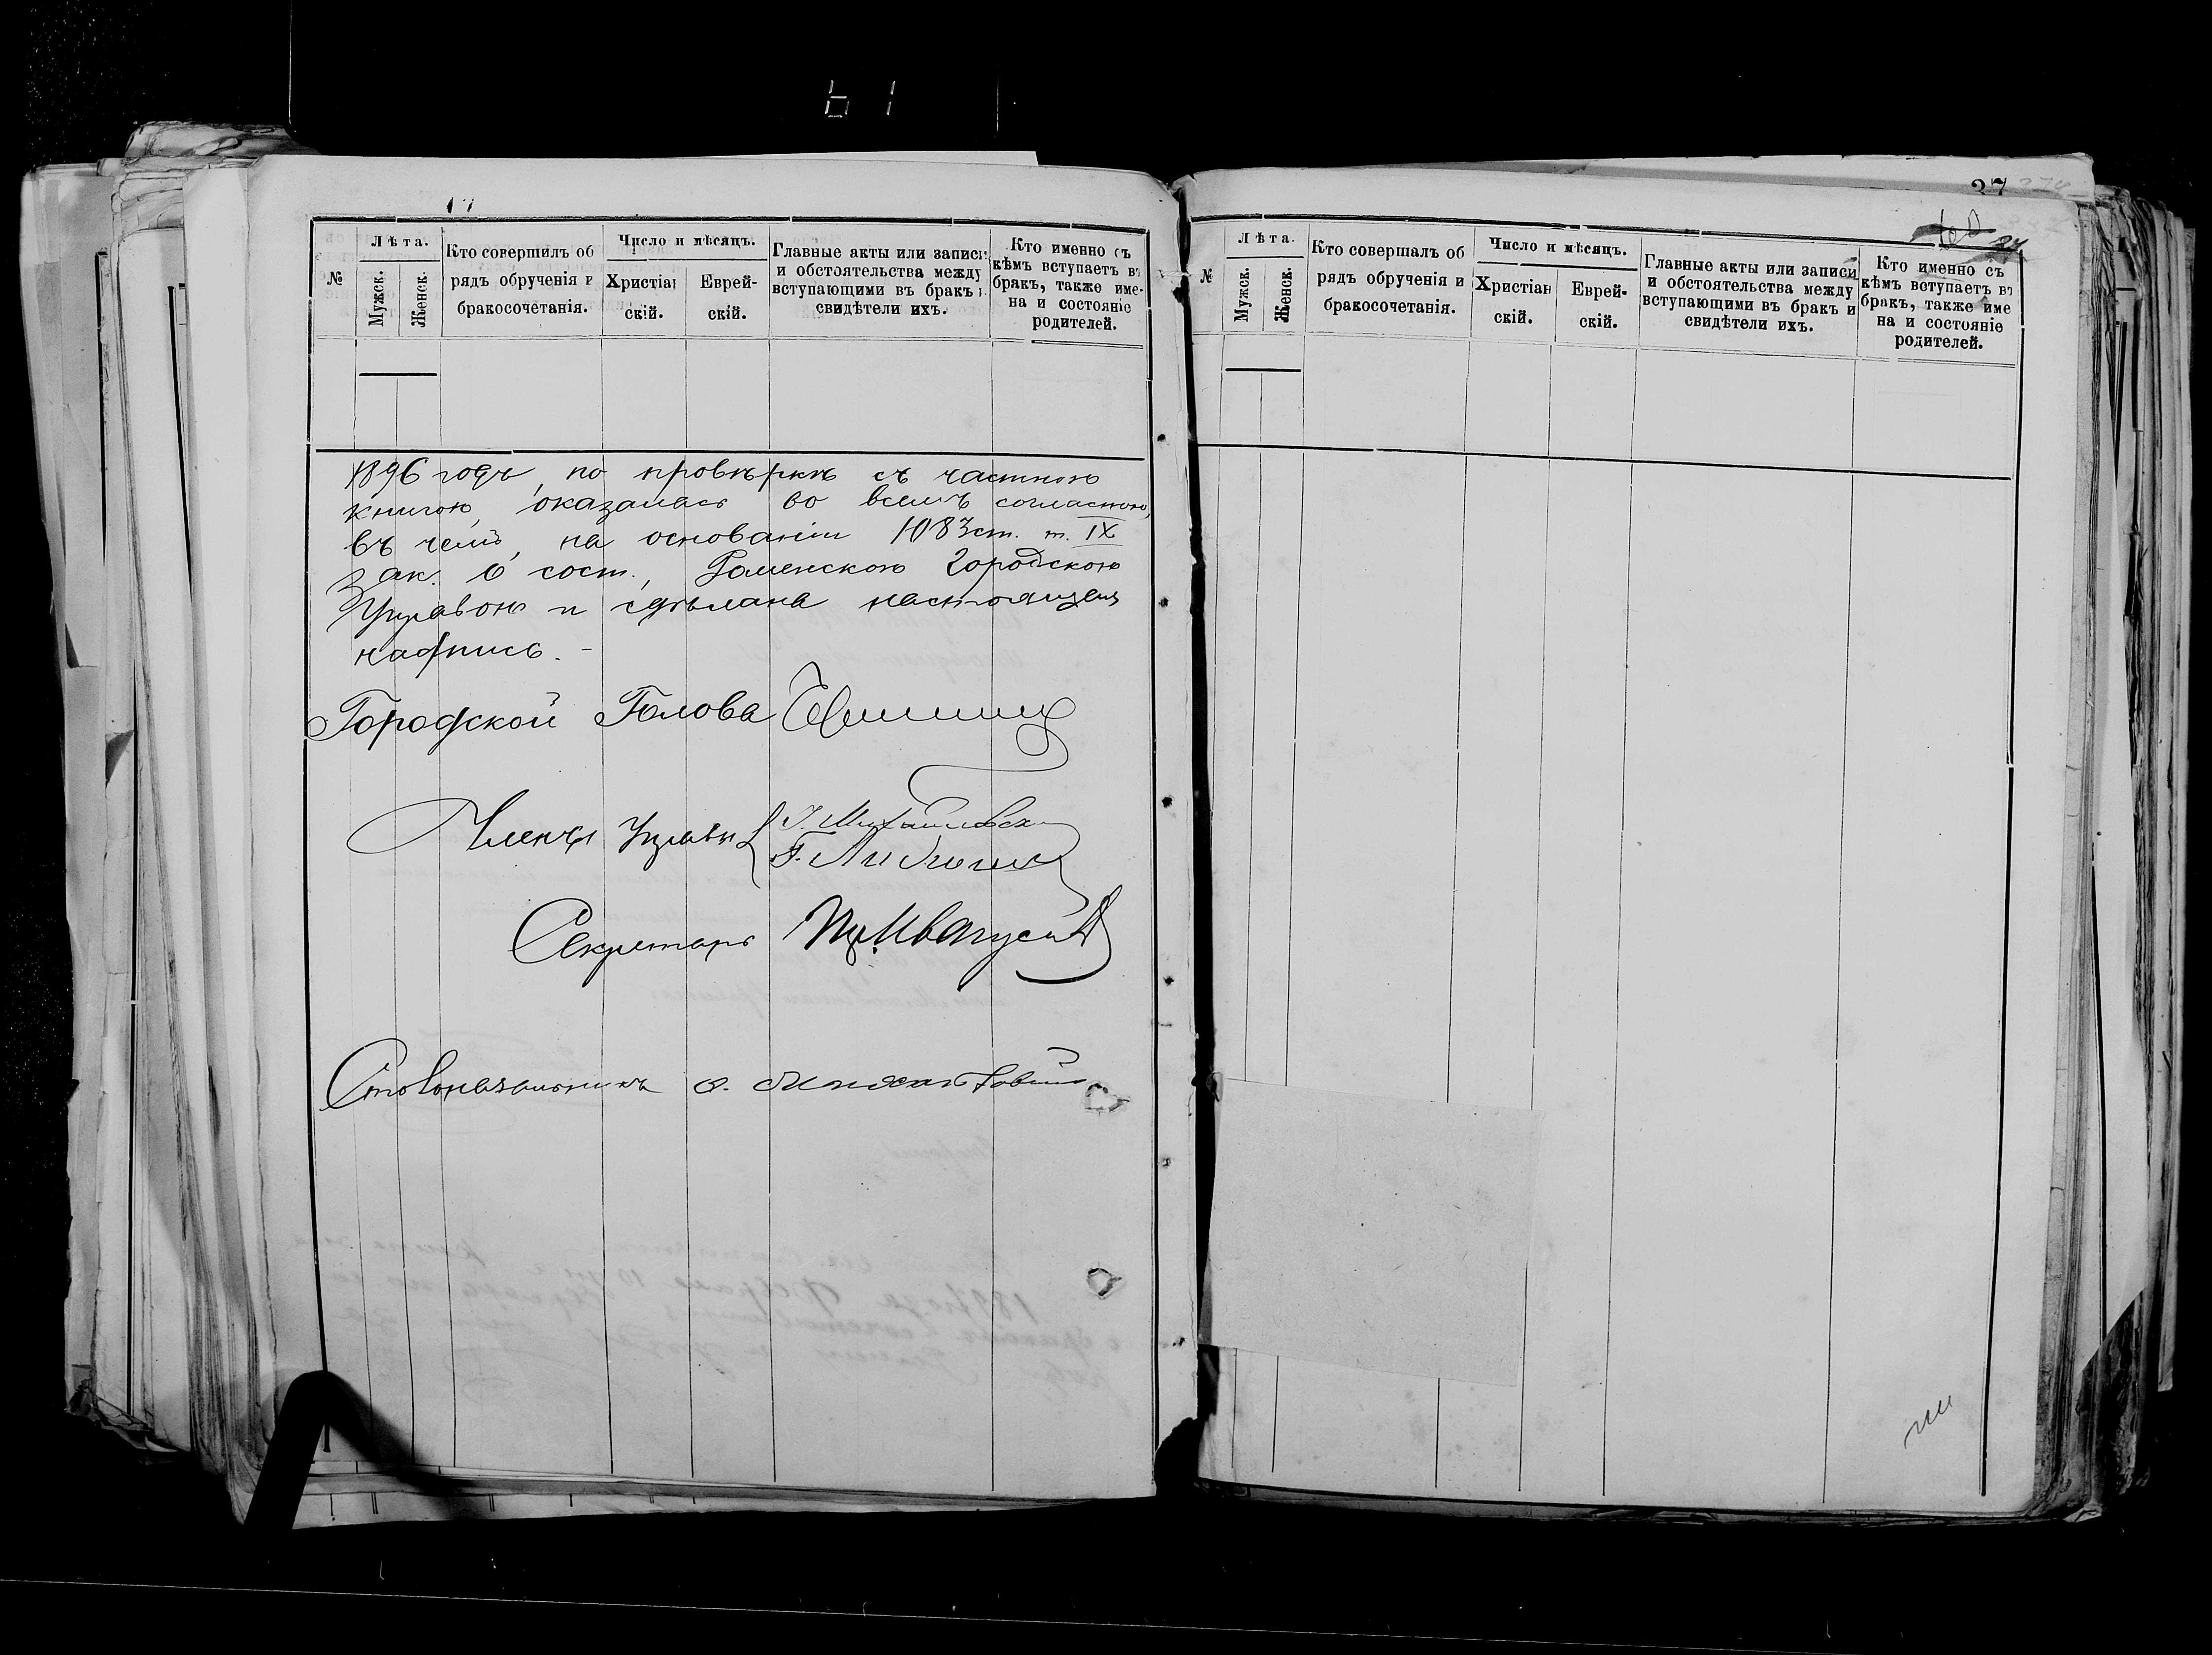 №
Лѣта.
Мужск.
Женск.
Кто совершилъ об
рядъ обрученія и
бракосочетанія.
Число и мѣсяцъ.
Христіан
скій.
Еврей-
скій.
Главные акты или записи
и обстоятельства между
вступающими въ бракъ и
свидѣтели ихъ.
Кто именно съ
кѣмъ вступаетъ въ
бракъ, также име-
на и состояніе
родителей.
1896 годъ, по провѣркѣ съ частною
книгою, оказалась во всемъ согласною,
въ чемъ, на основаніи 1083 ст. т. IX
зак. о сост., Роменскою Городскою
Управою и сдѣлана настоящая
надпись. -
Городской Голова
Члены Управы
Секретарь
Столоначальникъ
37
№
Лѣта.
Мужск.
Женск.
Кто совершалъ об
рядъ обрученія и
бракосочетанія.
Число и мѣсяцъ.
Христіан
скій.
Еврей-
скій.
Главные акты или записи
и обстоятельства между
вступающими въ бракъ и
свидѣтели ихъ.
Кто именно съ
кѣмъ вступаетъ въ
бракъ, также име
на и состояніе
родителей.